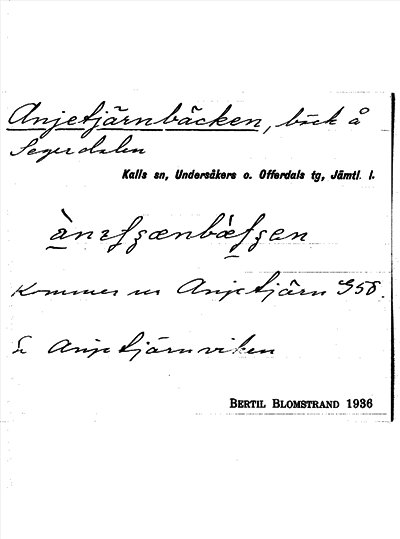 Anjetjärnbäcken, bäck å
Segerdalen
Kalls sn, Undersåkers o. Offerdals tg, Jämtl. l.
Kommer ur Anjetjärn 958.
Anjetjärnviken
BERTIL BLOMSTRAND 1936